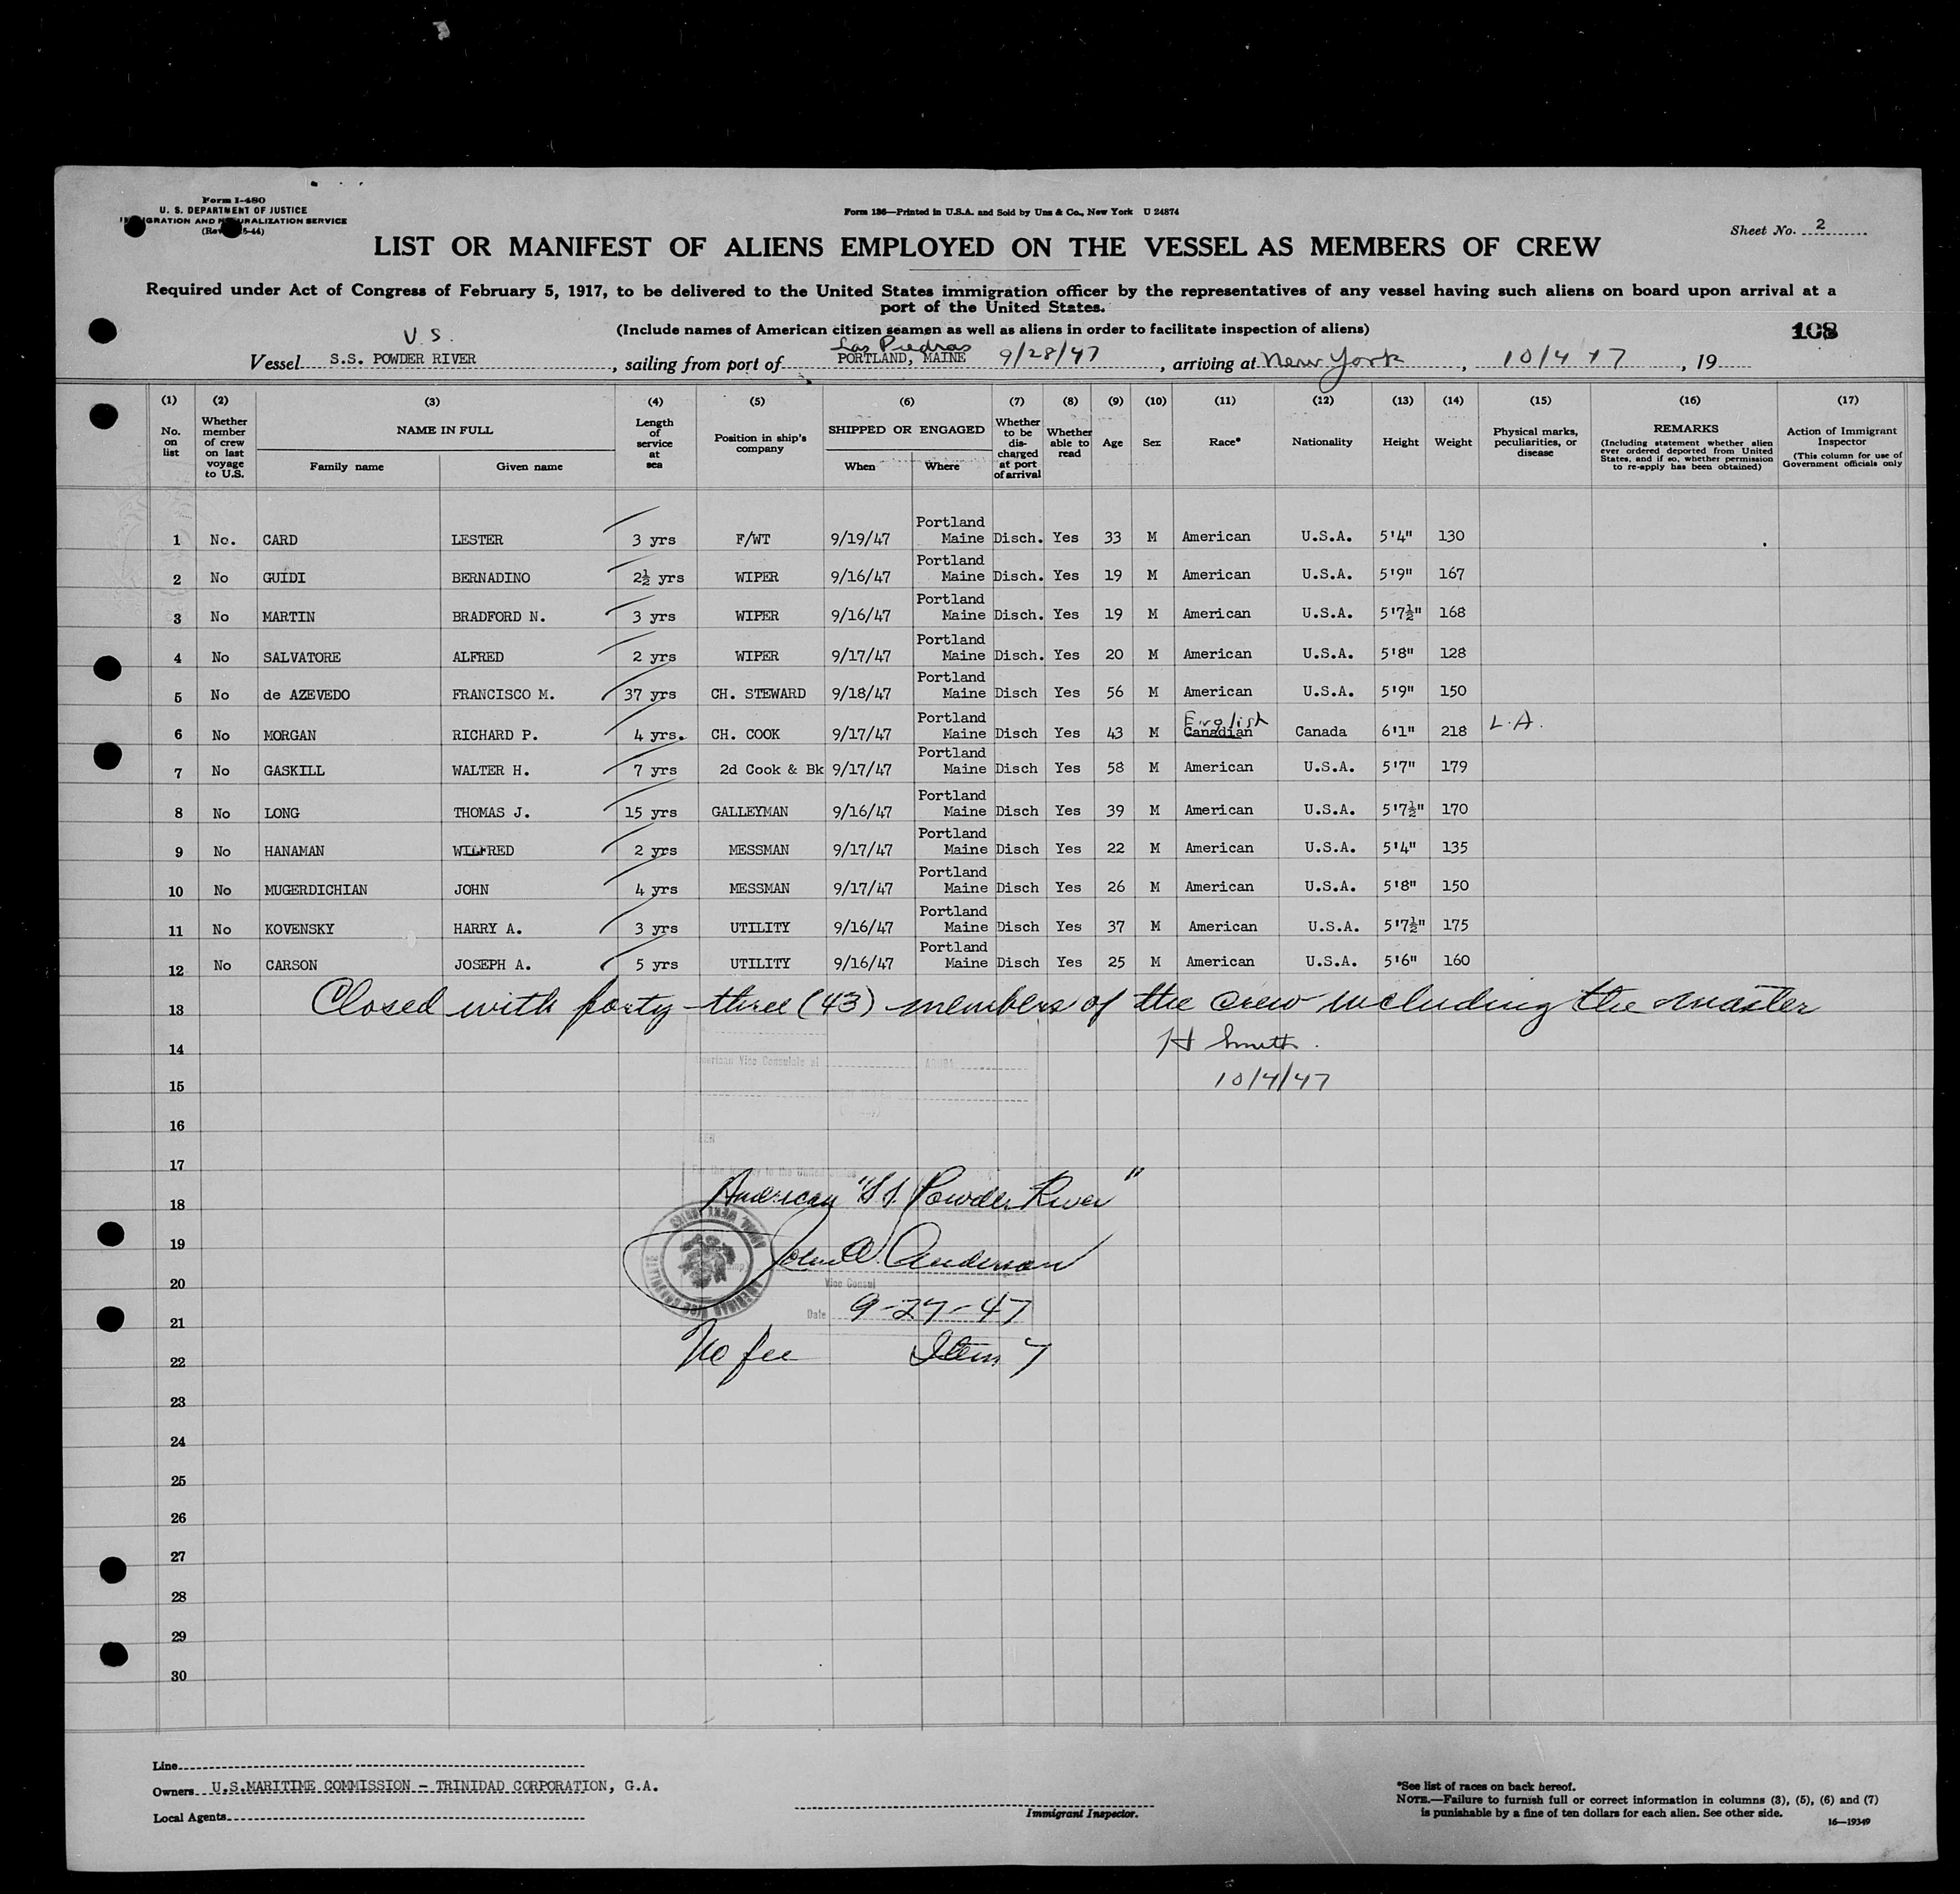 Form I-480
U. S. DEPARTMENT OF JUSTICE
IMMIGRATION AND NATURALIZATION SERVICE
(Rev. 5-44)
Form 186—Printed in U.S.A. and Sold by Unz & Co., New York U 24874
Sheet No. 2
LIST OR MANIFEST OF ALIENS EMPLOYED ON THE VESSEL AS MEMBERS OF CREW
Required under Act of Congress of February 5, 1917, to be delivered to the United States immigration officer by the representatives of any vessel having such aliens on board upon arrival at a
port of the United States.
(Include names of American citizen seamen as well as aliens in order to facilitate inspection of aliens)
108
U.S. Las Piedras
Vessel S.S. POWDER RIVER, sailing from port of PORTLAND, MAINE 9/28/47, arriving at New York, 10/4 47, 19
(1) (2) (3) (4) (5) (6) (7) (8) (9) (10) (11) (12) (13) (14) (15) (16) (17)
No. on list
Whether member of crew on last voyage to U.S.
NAME IN FULL
Family name Given name
Length of service at sea
Position in ship's company
SHIPPED OR ENGAGED
When Where
Whether to be discharged at port of arrival
Whether able to read
Age
Sex
Race*
Nationality
Height
Weight
Physical marks, peculiarities, or disease
REMARKS
(Including statement whether alien ever ordered deported from United States, and if so, whether permission to re-apply has been obtained)
Action of Immigrant Inspector
(This column for use of Government officials only
1 No. CARD LESTER 3 yrs F/WT 9/19/47 Portland Maine Disch. Yes 33 M American U.S.A. 5'4" 130
2 No GUIDI BERNADINO 2½ yrs WIPER 9/16/47 Portland Maine Disch. Yes 19 M American U.S.A. 5'9" 167
3 No MARTIN BRADFORD N. 3 yrs WIPER 9/16/47 Portland Maine Disch. Yes 19 M American U.S.A. 5'7½" 168
4 No SALVATORE ALFRED 2 yrs WIPER 9/17/47 Portland Maine Disch. Yes 20 M American U.S.A. 5'8" 128
5 No de AZEVEDO FRANCISCO M. 37 yrs CH. STEWARD 9/18/47 Portland Maine Disch Yes 56 M American U.S.A. 5'9" 150
6 No MORGAN RICHARD P. 4 yrs. CH. COOK 9/17/47 Portland Maine Disch Yes 43 M English Canadian Canada 6'1" 218 L.A.
7 No GASKILL WALTER H. 7 yrs 2d Cook & Bk 9/17/47 Portland Maine Disch Yes 58 M American U.S.A. 5'7" 179
8 No LONG THOMAS J. 15 yrs GALLEYMAN 9/16/47 Portland Maine Disch Yes 39 M American U.S.A. 5'7½" 170
9 No HANAMAN WILFRED 2 yrs MESSMAN 9/17/47 Portland Maine Disch Yes 22 M American U.S.A. 5'4" 135
10 No MUGERDICHIAN JOHN 4 yrs MESSMAN 9/17/47 Portland Maine Disch Yes 26 M American U.S.A. 5'8" 150
11 No KOVENSKY HARRY A. 3 yrs UTILITY 9/16/47 Portland Maine Disch Yes 37 M American U.S.A. 5'7½" 175
12 No CARSON JOSEPH A. 5 yrs UTILITY 9/16/47 Portland Maine Disch Yes 25 M American U.S.A. 5'6" 160
13 Closed with forty-three (43) members of the crew including the master
14 H Smith.
American Vice Consulate at ARUBA
15 10/4/47
16
17
For the journey to the United States
18 American "SS. Powder River"
19 John A. Anderson
20 Vice Consul
21 Date 9-27-47
22 No fee Item 7
23
24
25
26
27
28
29
30
AMERICAN VICE CONSULATE
Line
Owners U.S.MARITIME COMMISSION - TRINIDAD CORPORATION, G.A.
Local Agents
Immigrant Inspector.
*See list of races on back hereof.
NOTE.—Failure to furnish full or correct information in columns (3), (5), (6) and (7)
is punishable by a fine of ten dollars for each alien. See other side.
16—19349